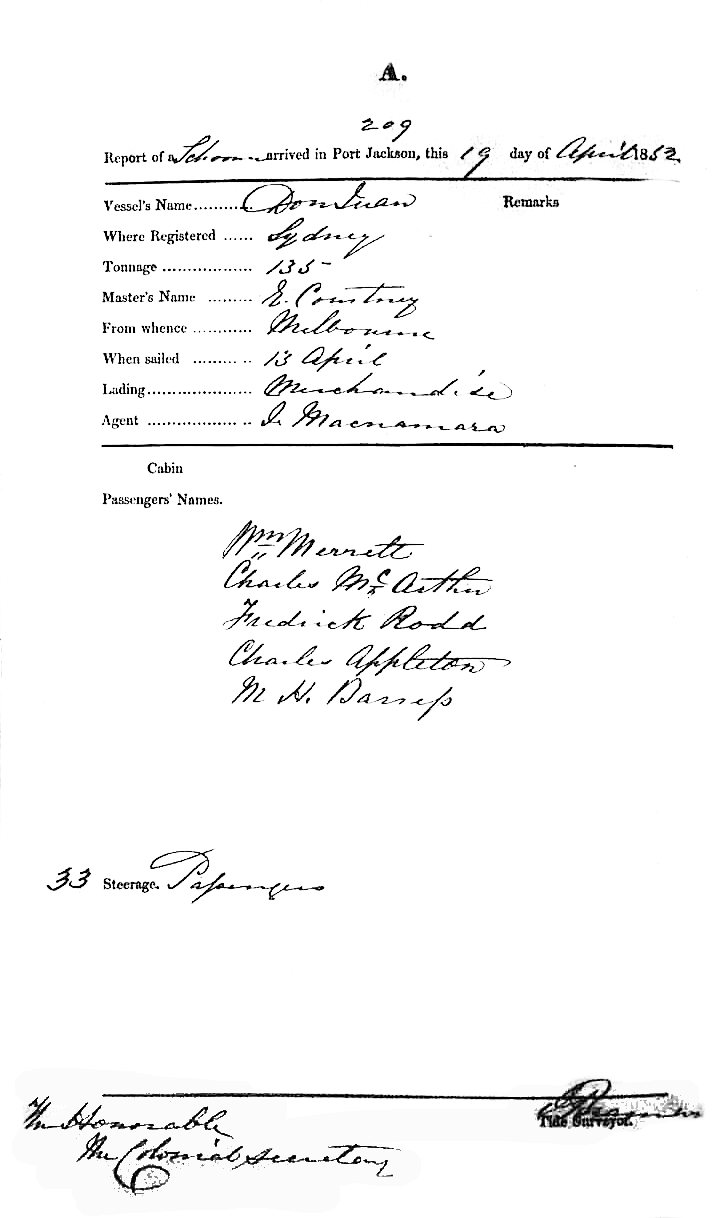 A.
209
Report of a Schoon arrived in Port Jackson, this 19 day of April 1852
Vessel's Name.......... Don Juan Remarks
Where Registered ...... Sydney
Tonnage .................. 135
Master's Name ......... E. Courtney
From whence ............ Melbourne
When sailed ........... 13 April
Lading..................... Merchandise
Agent ..................... Macnamara
Cabin
Passengers' Names.
Wm Merrett
Charles Mc Arthur
Fredrick Rodd
Charles Appleton
M H.
33 Steerage. Passengers
Tide Surveyor.
The Honorable
The Colonial Secretary